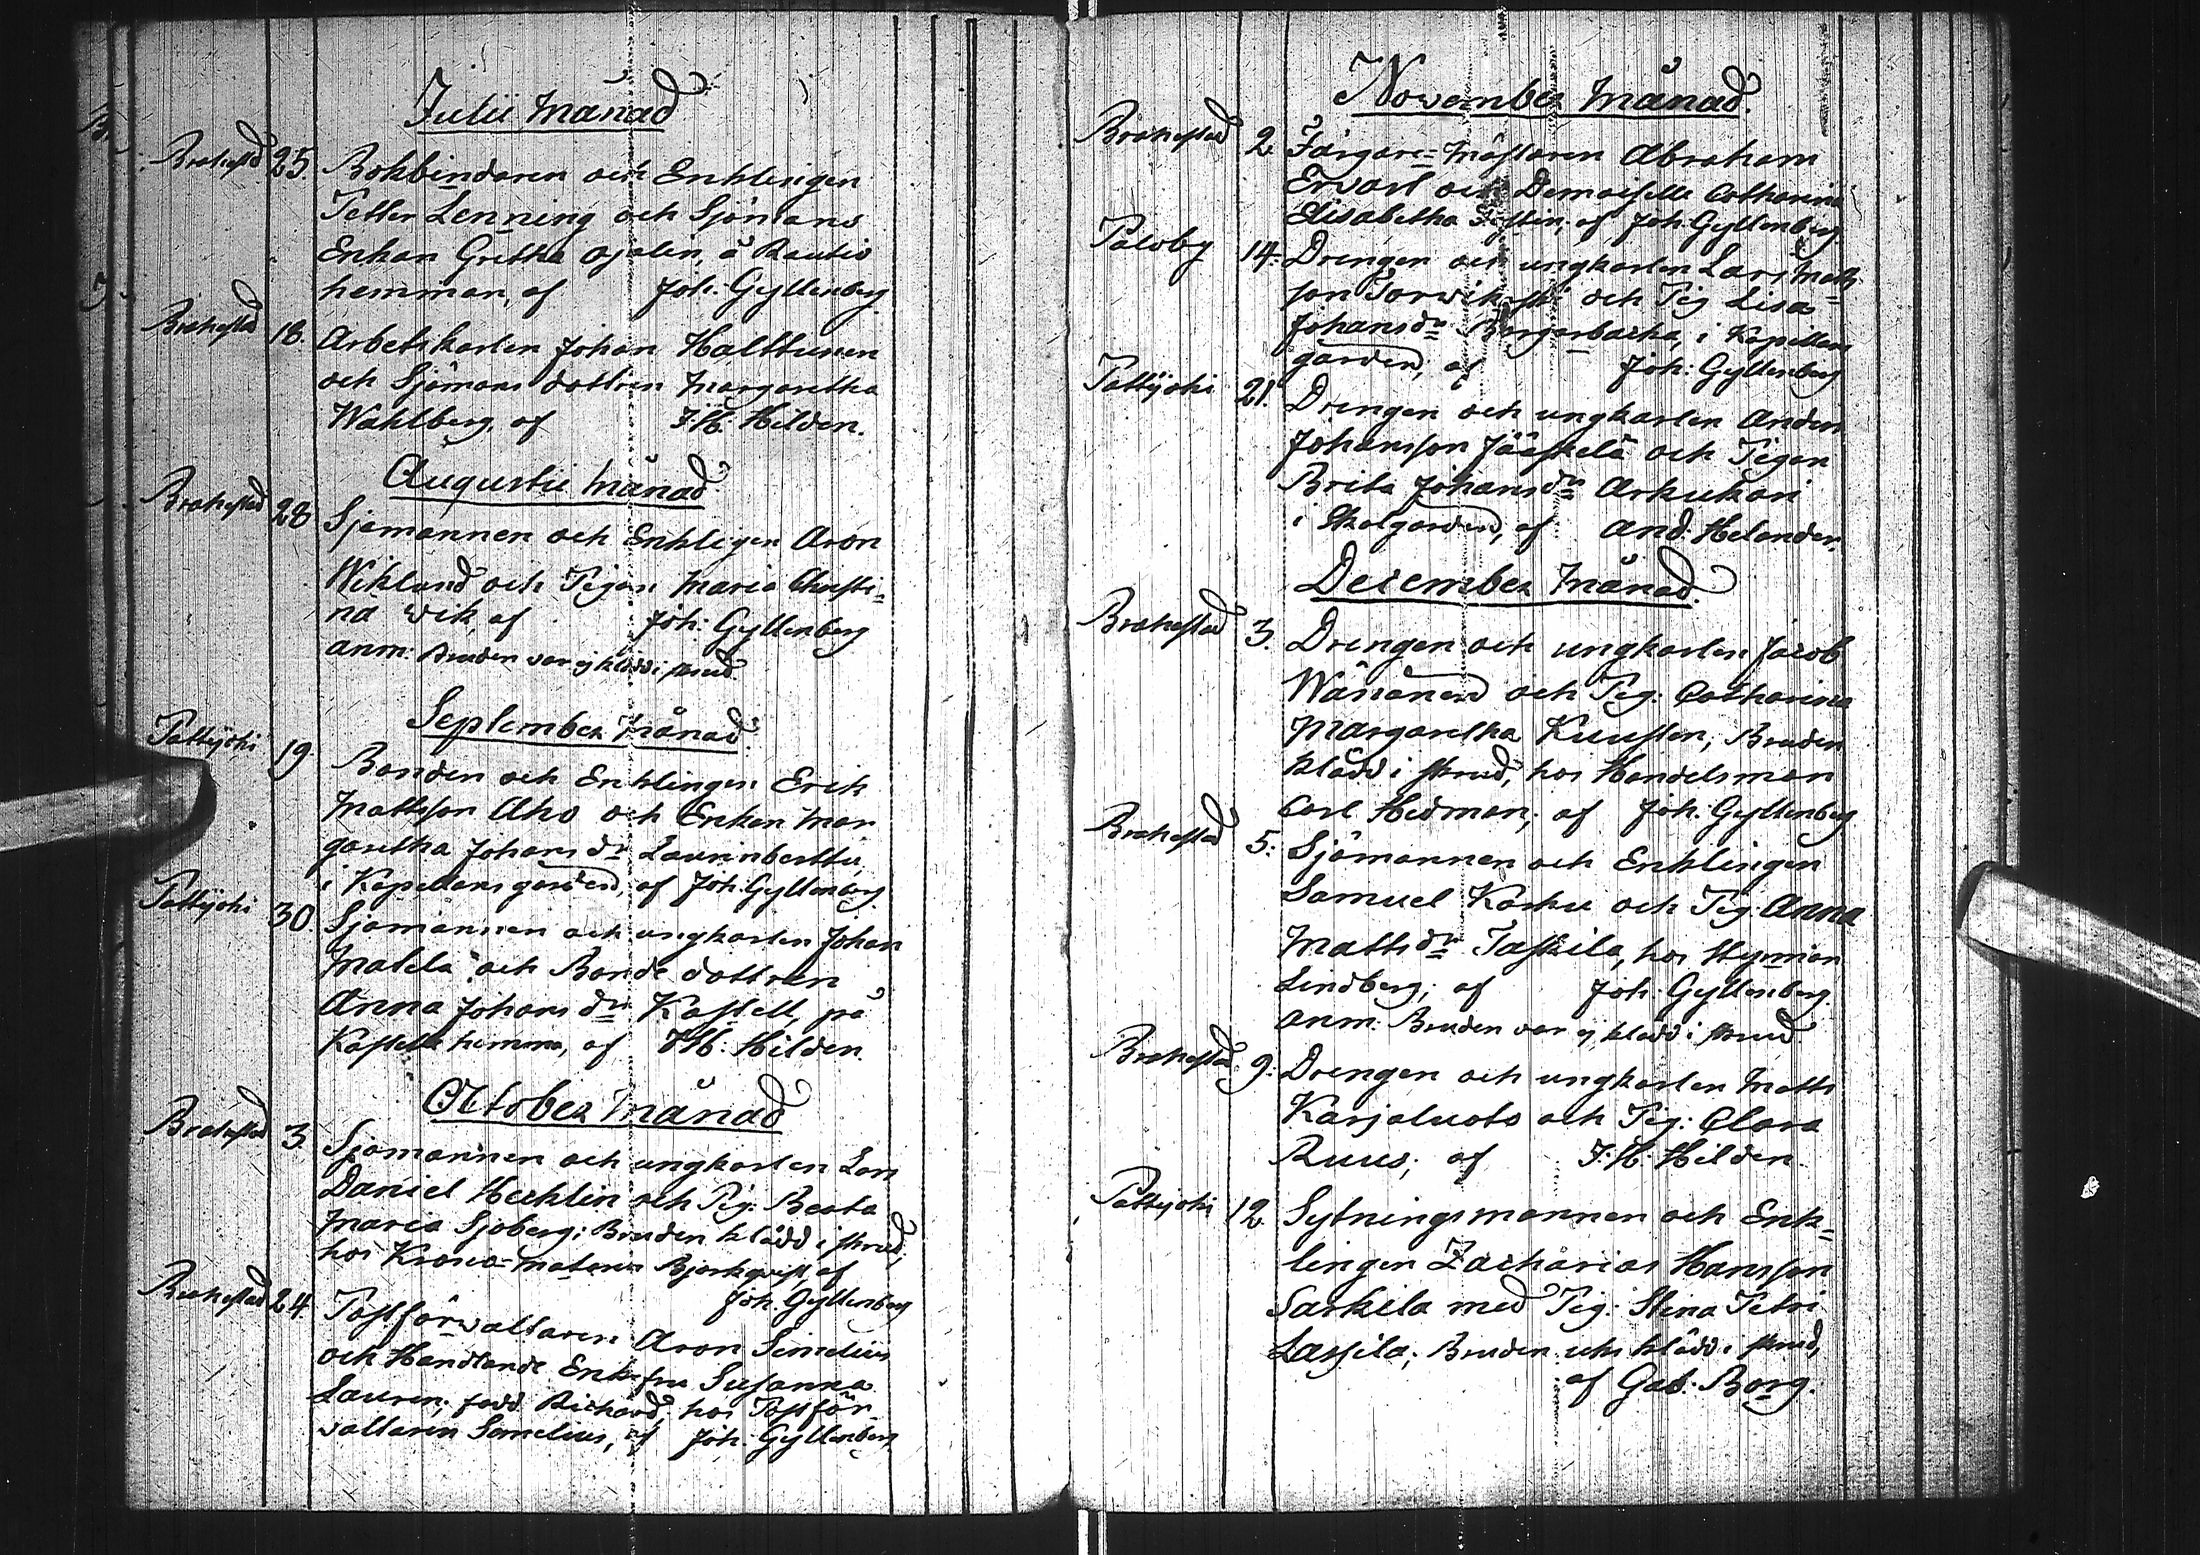 Julii Månad
Brahestad 25. Bokbindaren och Enklingen
Petter Lenning och Sjömans
Enkan Gretha Ojalin, å Rautio
hemman, af Joh: Gyllenberg
Brahestad 18. Arbetskarlen Johan Halttunen
och Sjömans dottren Margaretha
Wahlberg, af J.H. Hilden.
Augustii Månad
Brahestad 28 Sjömannen och Enkligen Aron
Wiklund och Pigan Maria Christi-
na Wik, af Joh: Gyllenberg
anm: Bruden var ej klädd i skrud.
September Månad.
Pattijoki 19 Bonden och Enklingen Erik
Mattsson Aho och Enkan Mar
garetha Johansdr
i Kapellans garden, af Joh: Gyllenberg
Pattijoki 30. Sjömannen och ungkarlen Johan
Matela och Bonde dottren
Anna Johansdr Kastell, på
Kastell hemma, af J.H. Hilden
October Månad
Brahestad 3 Sjömannen och ungkarlen Lars
Daniel Hecklin och Pig: Beata
Maria Sjöberg; Bruden klädd i skrud,
hos Krono- Björkqvist, af
Joh. Gyllenberg
Brahestad 24. Postförwaltaren Aron Simelius
och Handlande Enke fru Susanna
Lauren, född Richard, hos Postför
valtaren Simelius, af Joh: Gyllenberg
November Månad.
Brahestad 2. Färgare-Mästaren Abraham
Ervast och Demoiselle Catharina
Elisabetha af Joh: Gyllenberg
Paloby 14. Drengen och ungkarlen Lars Matts
son och Pig Lisa
Johansdr i Kapellans
garden, af Joh: Gyllenberg
Pattijoki 21. Drengen och ungkarlen Anders
Johansson Jääskelä och Pigan
Brita Johansdr Arkukari
i Skolgarden, af And. Helander.
December Månad.
Brahestad 3. Drengen och ungkarlen Jacob
Wänänen och Pig: Catharina
Margaretha Kuusten, Bruden
klädd i skrud, hos Handelsman
Carl Hedman, af Joh: Gyllenberg
Brahestad 5. Sjömannen och Enklingen
Samuel Karhu och Pig: Anna
Mattsdr Taskila, hos Styrman
Lindberg; af Joh: Gyllenberg.
anm: Bruden var ej klädd i skrud.
Brahestad 9. Drengen och ungkarlen Matts
Karjaluoto och Pig: Clara
Ruus; af J.H. Hilden
Pattijoki 12. Sytningsmannen och Enk-
lingen Zacharias Hansson
Sarkela med Pig: Stina Petri
Lassila; Bruden icke klädd i skrud,
af Gab: Borg.